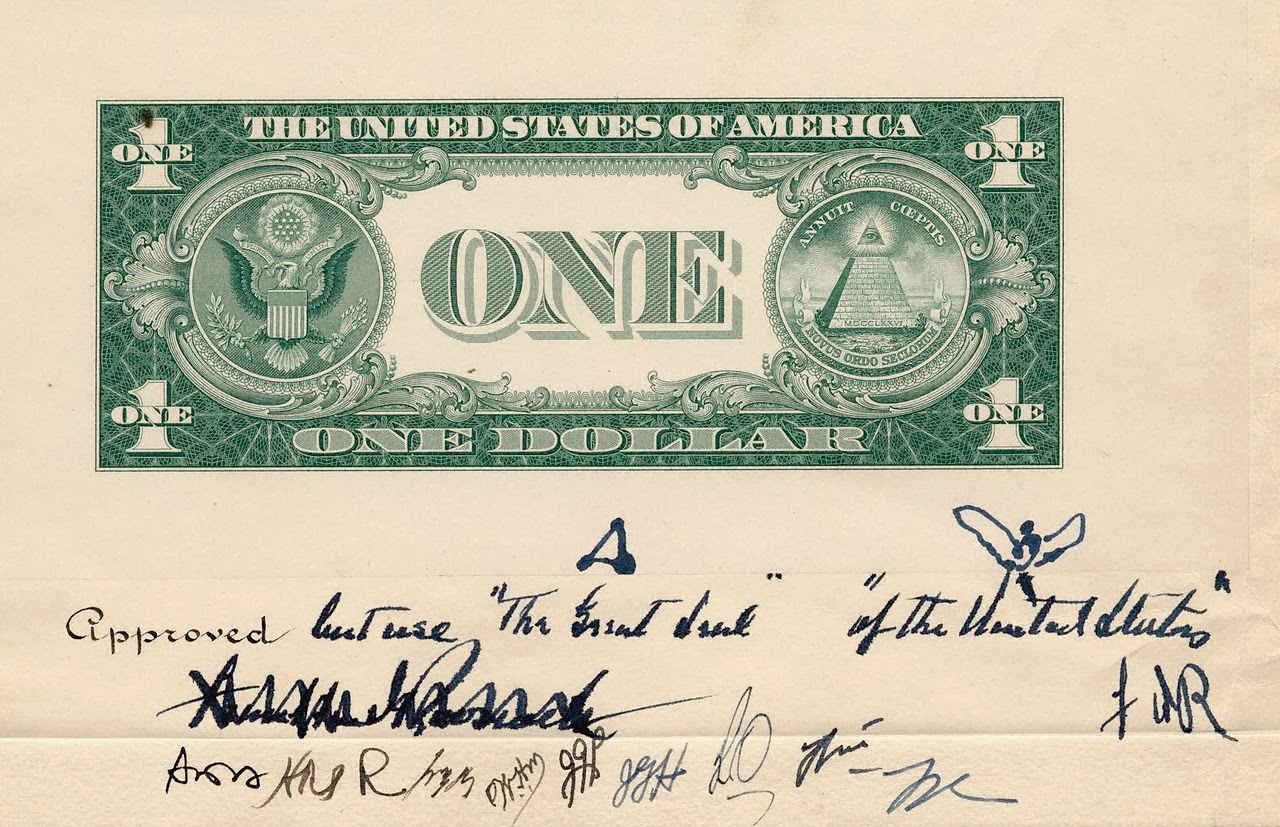 THE UNITED STATES OF AMERICA
1 ONE
1 ONE
ANNUIT CŒPTIS
ONE
MDCCLXXVI
NOVUS ORDO SECLORUM
1 ONE
1 ONE
ONE DOLLAR
Approved but use "The Great Seal" "of the United States"
FDR
JGH